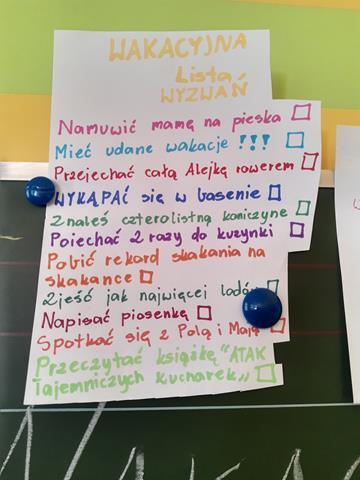 WAKACYJNA
Lista
WYZWAŃ
Namuwić mamę na pieska
Mieć udane wakacje !!!
Przejechać całą Alejką rowerem
WYKĄPAĆ się w basenie
Znaleś czterolistną koniczynę
Poiechać 2 razy do kuzynki
Pobić rekord skakania na
skakance
Zjeść jak najwięcej lodów
Napisać piosenkę
Spotkać się z Polą i Mają
Przeczytać książkę "ATAK
Tajemniczych kucharek"